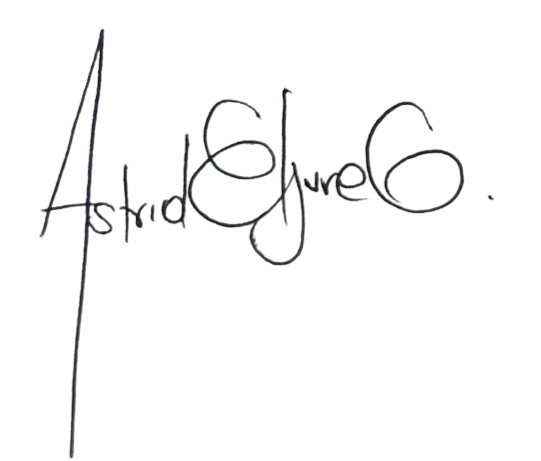 Astrid Eljure G.